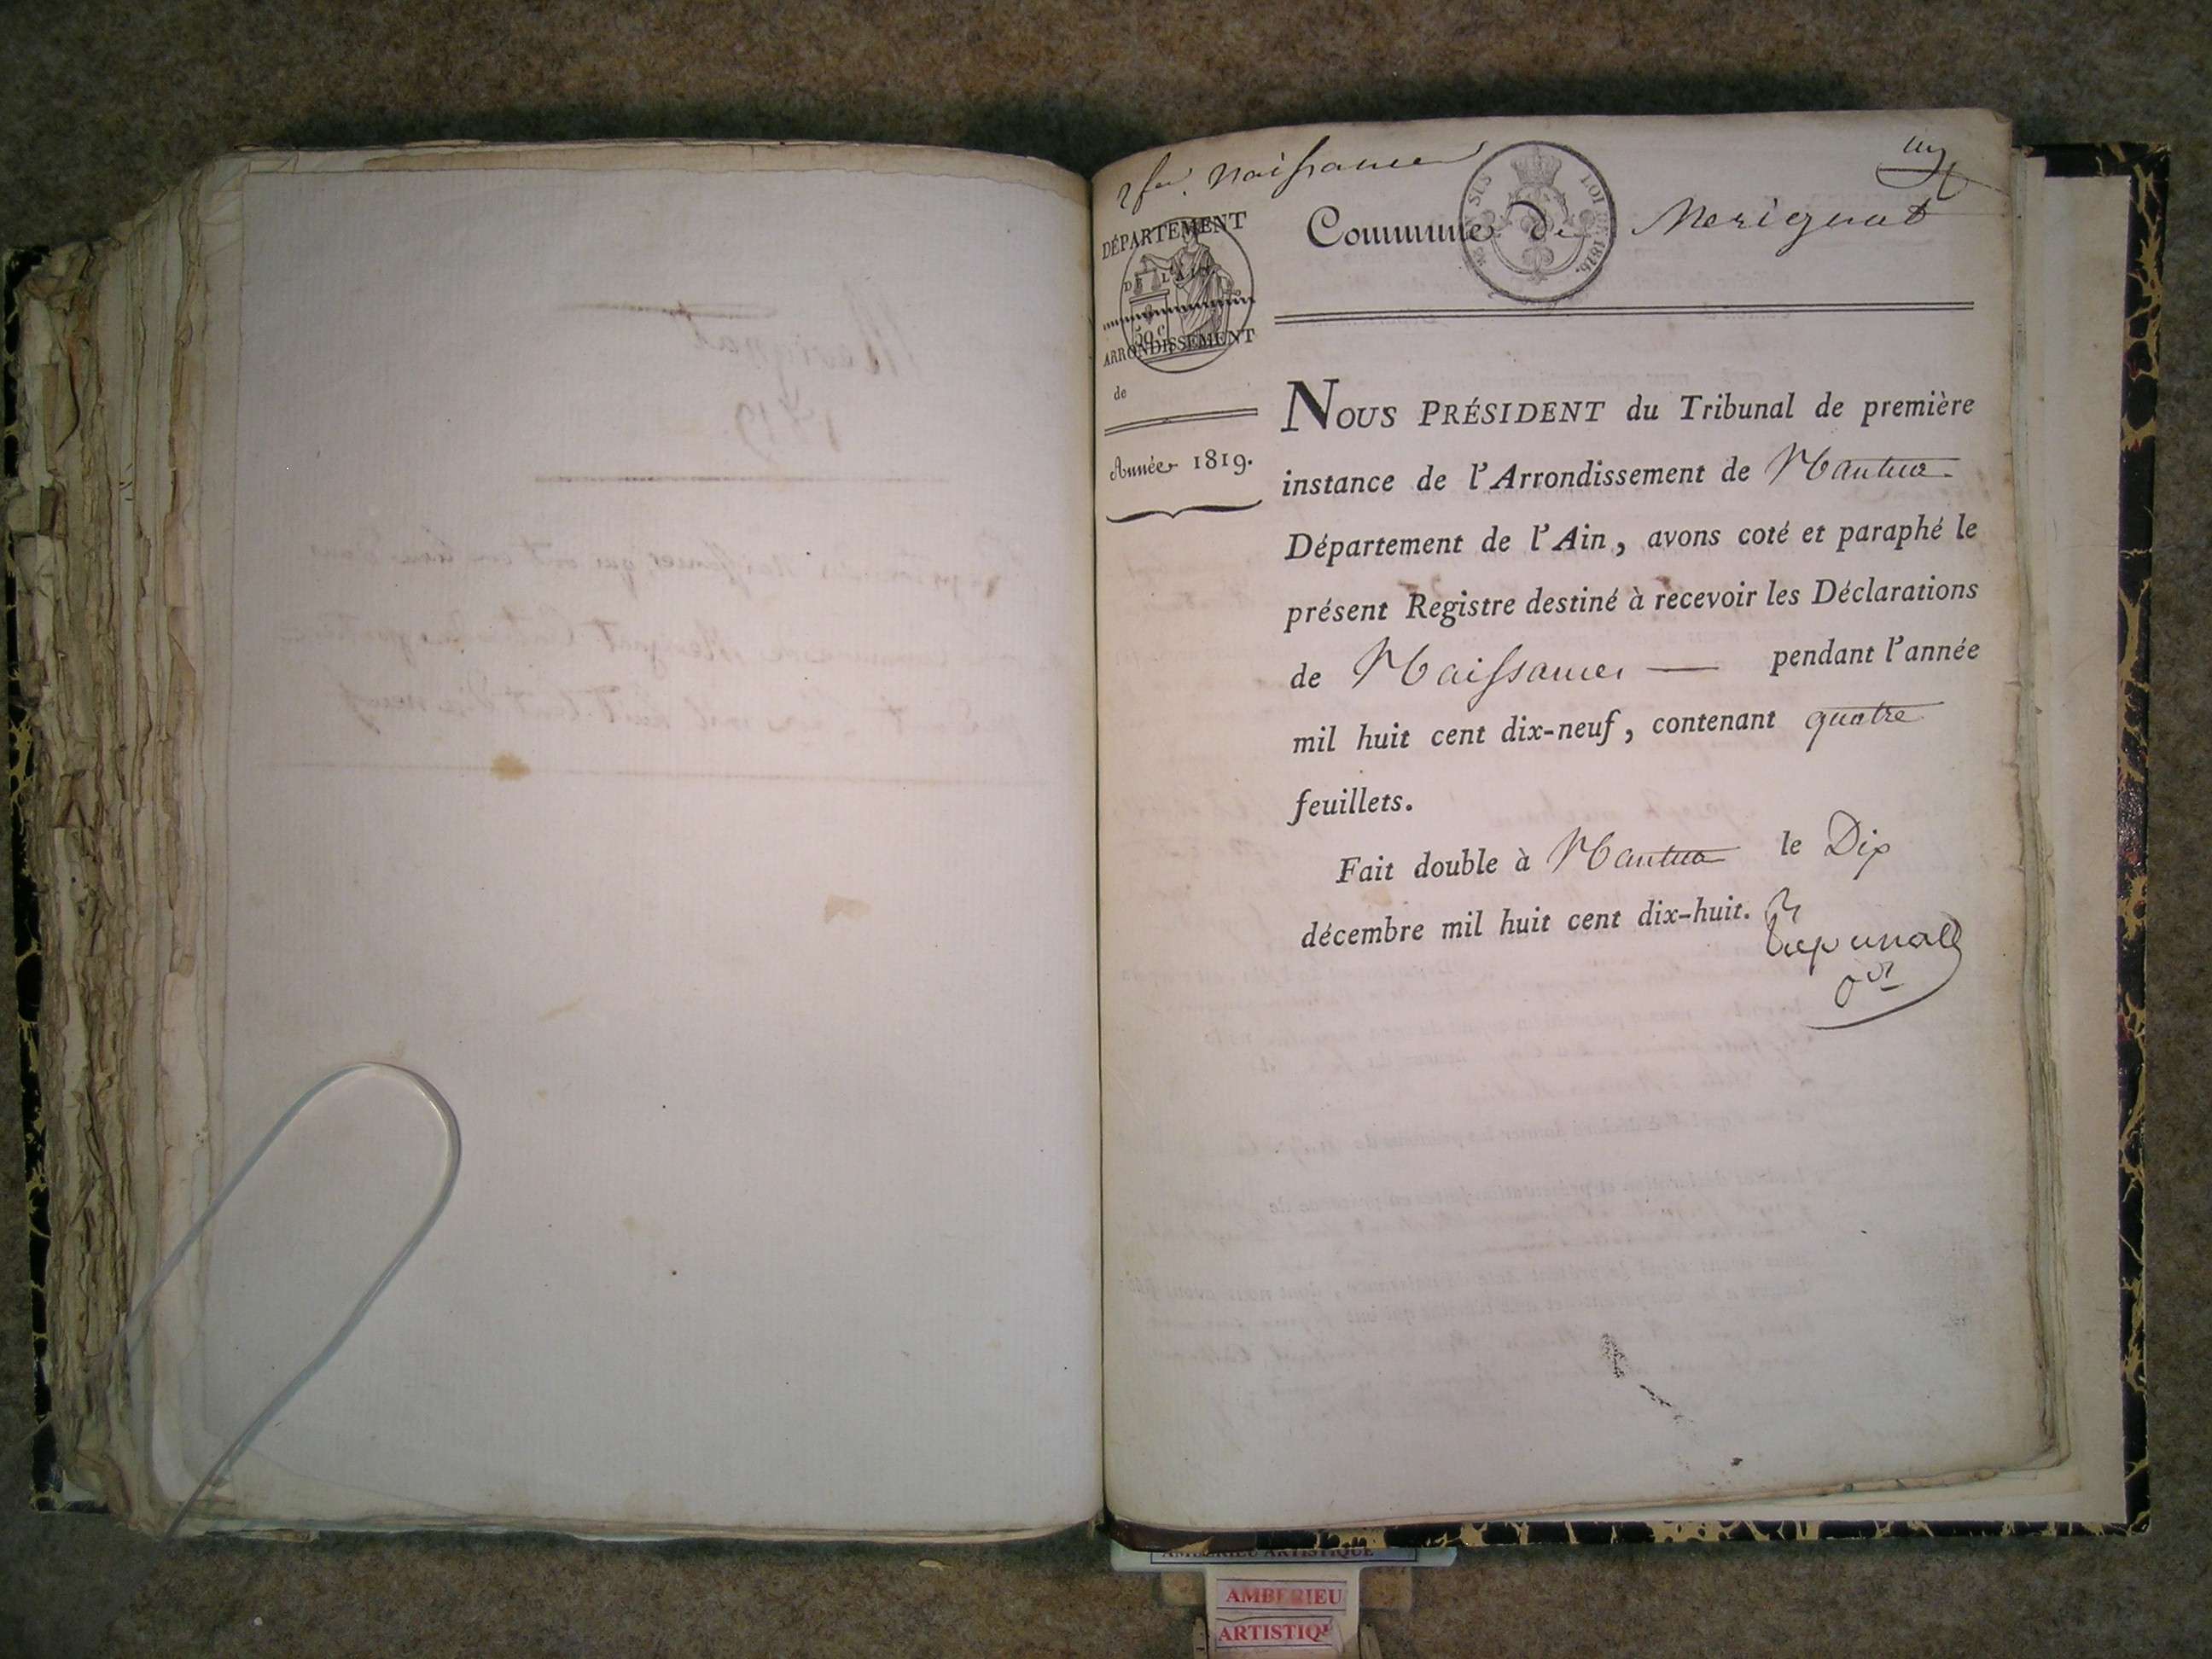 naissances
Commune de Merignat
SUS LOI DE 1816.
DÉPARTEMENT
DE L'AIN
50 c
ARRONDISSEMENT
de
Année 1819.
NOUS PRÉSIDENT du Tribunal de première
instance de l'Arrondissement de Nantua
Département de l'Ain, avons coté et paraphé le
présent Registre destiné à recevoir les Déclarations
de Naissances — pendant l'année
mil huit cent dix-neuf, contenant quatre
feuillets.
Fait double à Nantua le Dix
décembre mil huit cent dix-huit.
AMBERIEU ARTISTIQUE
AMBERIEU
ARTISTIQ